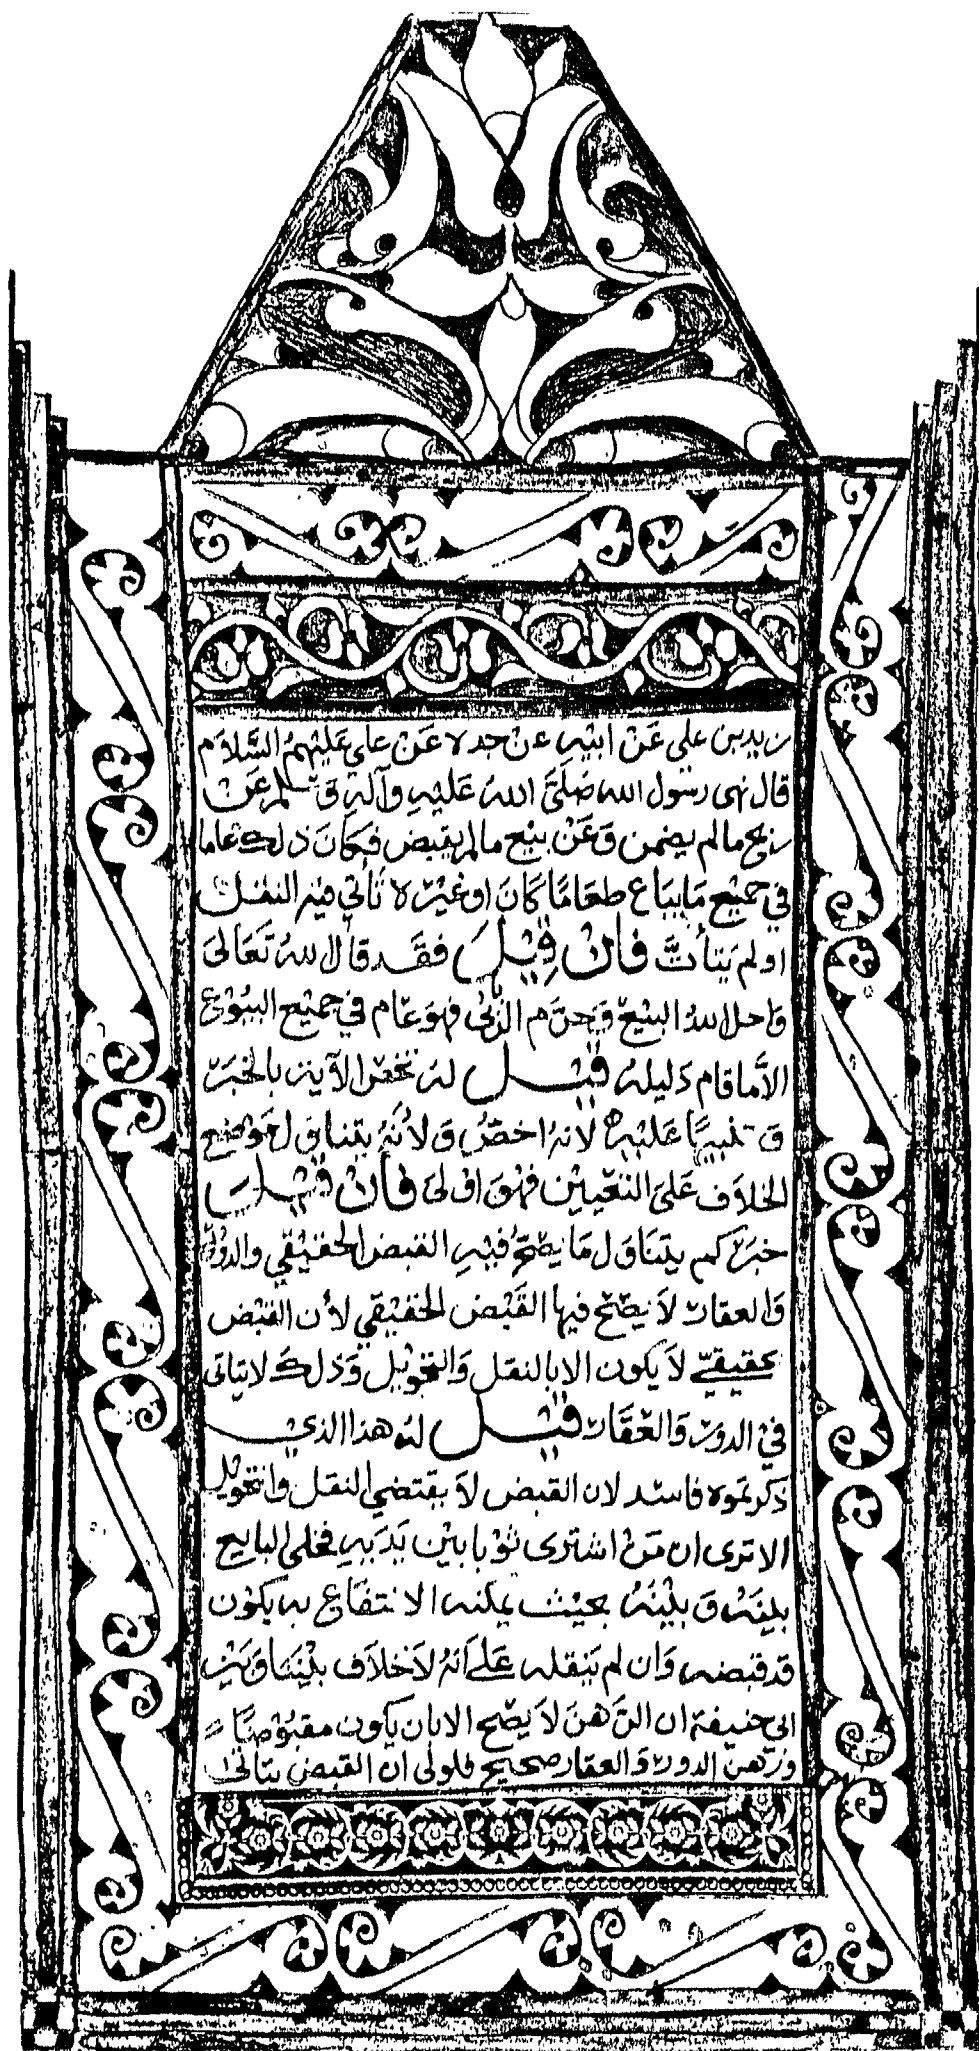 زيد بن علي عَنْ ابيْهِ عن جده عَنْ علي عَليْهِمُ السَّلاَم
قال نهى رسول الله صَلَّىَ اللهُ عَليْهِ وَآلهِ وَسلمَ عَنْ
ربح مالم يضمن وَعَنْ بيْع مالم يقبض فكَانَ ذلك عاما
في جميْع مَا يبَاع طعَامًا كَانَ او غيْرَه تأتي فيه النقل
او لم يَتأتَّ فان قِيْلَ فقَد قال اللهُ تَعَالىَ
وَاحل اللهُ البيْعَ وَحرَّم الرِّبى فهوَ عَام في جميْع البيُوْع
الاَّ ما قام دَليله قيْل له نخصّ الآية بالخبَرِ
لأنه اخصّ وَلأنهُ يتناوَل مَوضع
الخلاَف عَلىَ التعْييْن فهْوَ اوْلىَ فان قيْل
خبرَكم يتنَاوَل مَا يصحّ فيْهِ القبض الحقيْقي والدوْر
وَالعقارْ لاَ يصِحّ فيها القَبْض الحقيْقي لأن القبْض
حقيقيّ لاَ يكون الا بالنقل وَالتحْويْل وَذلكَ لا يتاتى
في الدورْ وَالعْقَارْ قيْل لهُ هذا الذي
ذكرتموه فاسد لان القبْض لاَ يقتضي النقل وَالتحويْل
الا ترى ان مَنْ اشترى ثوْبا بيْن يَدَيهِ فخلى البايع
بيْنَهُ وَبيْنهُ بحيْث يمكنه الانتفاع به يكوْن
قد قبَضه وَان لم يَنقله عَلى اَنهُ لاَ خلاَف بيْننَا وَبَيْن
ابي حنيفة ان الرّهنَ لاَ يصِح الا بان يكون مقبُوْضًا
وَرَهنْ الدورْ وَالعقار صحيْح فلولى ان القبض يتاتى